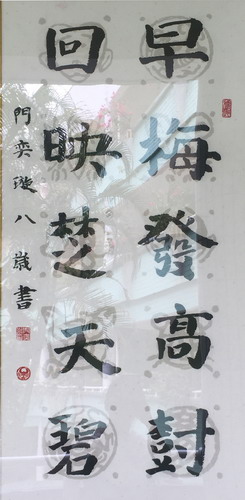 早梅發高尌
回映楚天碧
門奕漩八歲書